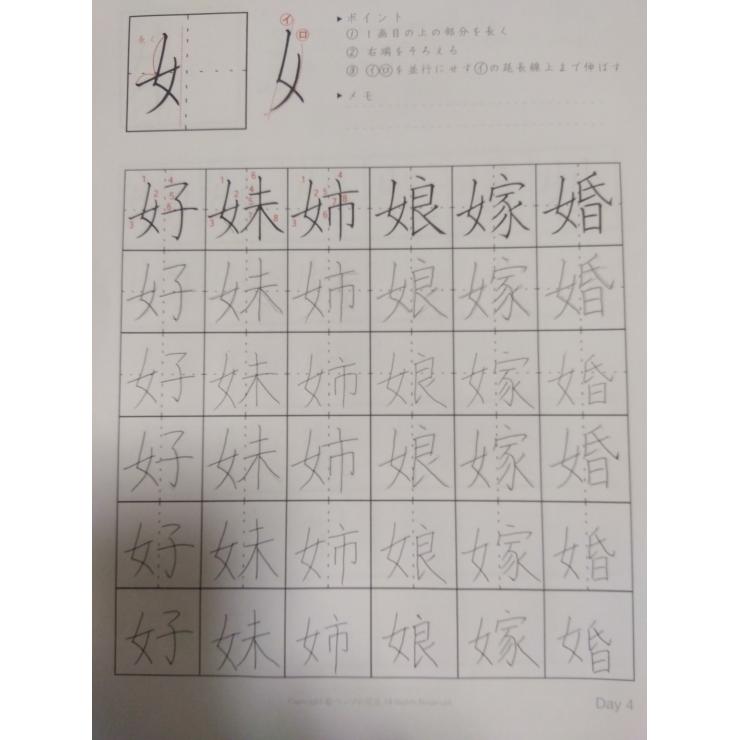 長く
女
㋑
㋺
▶ポイント
① 1画目の上の部分を長く
② 右端をそろえる
③ ㋑㋺を並行にせず㋑の延長線上まで伸ばす
▶メモ
好 妹 姉 娘 嫁 婚
好 妹 姉 娘 嫁 婚
好 妹 姉 娘 嫁 婚
好 妹 姉 娘 嫁 婚
好 妹 姉 娘 嫁 婚
好 妹 姉 娘 嫁 婚
All Rights Reserved.
Day 4